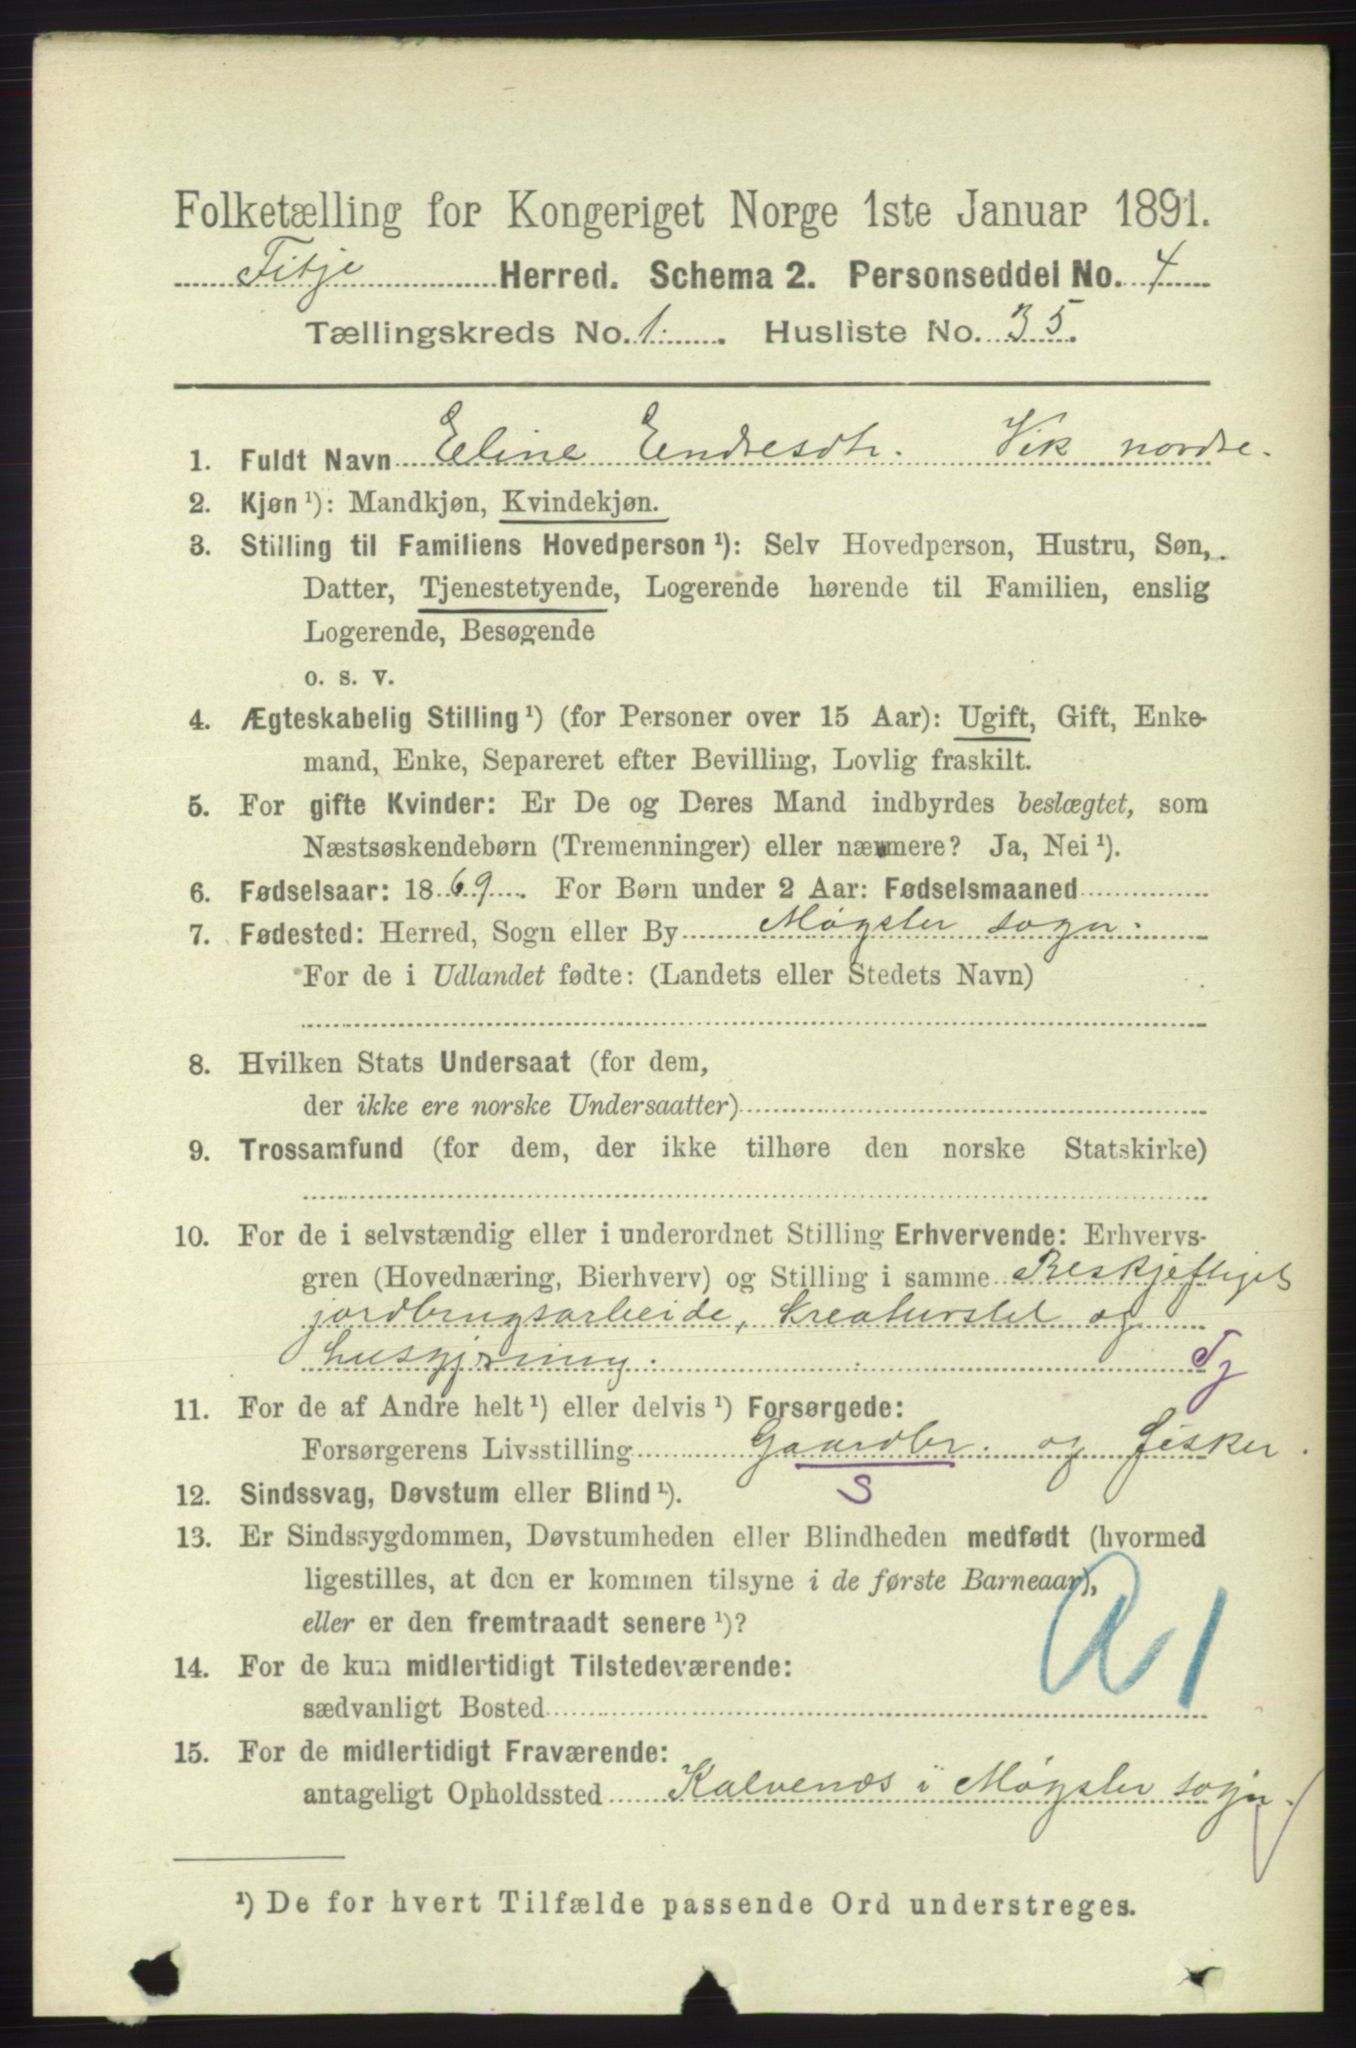 Folketælling for Kongeriget Norge 1ste Januar 1891.
Fitje Herred. Schema 2. Personseddel No. 4
Tællingskreds No. 1. Husliste No. 35.
1. Fuldt Navn Eline Endresdtr. Vik nordre.
2. Kjøn ¹): Mandkjøn, Kvindekjøn.
3. Stilling til Familiens Hovedperson ¹): Selv Hovedperson, Hustru, Søn,
Datter, Tjenestetyende, Logerende hørende til Familien, enslig
Logerende, Besøgende
o. s. v.
4. Ægteskabelig Stilling ¹) (for Personer over 15 Aar): Ugift, Gift, Enke-
mand, Enke, Separeret efter Bevilling, Lovlig fraskilt.
5. For gifte Kvinder: Er De og Deres Mand indbyrdes beslægtet, som
Næstsøskendebørn (Tremenninger) eller nærmere? Ja, Nei ¹).
6. Fødselsaar: 1869. For Børn under 2 Aar: Fødselsmaaned
7. Fødested: Herred, Sogn eller By Møgster sogn.
For de i Udlandet fødte: (Landets eller Stedets Navn)
8. Hvilken Stats Undersaat (for dem,
der ikke ere norske Undersaatter)
9. Trossamfund (for dem, der ikke tilhøre den norske Statskirke)
10. For de i selvstændig eller i underordnet Stilling Erhvervende: Erhvervs-
gren (Hovednæring, Bierhverv) og Stilling i samme Beskjeftiget
jordbrugsarbeide, kreaturstel og
husgjerning. Tj
11. For de af Andre helt ¹) eller delvis ¹) Forsørgede:
Forsørgerens Livsstilling Gaardbr. og fisker.
S
12. Sindssvag, Døvstum eller Blind ¹).
13. Er Sindssygdommen, Døvstumheden eller Blindheden medfødt (hvormed
ligestilles, at den er kommen tilsyne i de første Barneaar),
eller er den fremtraadt senere ¹)?
14. For de kun midlertidigt Tilstedeværende:
sædvanligt Bosted
15. For de midlertidigt Fraværende:
antageligt Opholdssted Kalvenæs i Møgster sogn.
¹) De for hvert Tilfælde passende Ord understreges.